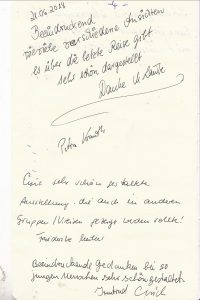 - 4 -
21.06.2018
Beeindruckend
wieviele verschiedene Ansichten
es über die letzte Reise gibt
sehr schön dargestellt
Danke
Petra
Eine sehr schön gestaltete
Ausstellung, die auch in anderen
Gruppen / Kreisen gezeigt werden sollte!
Beeindruckende Gedanken bei so
jungen Menschen sehr schön gestaltet.